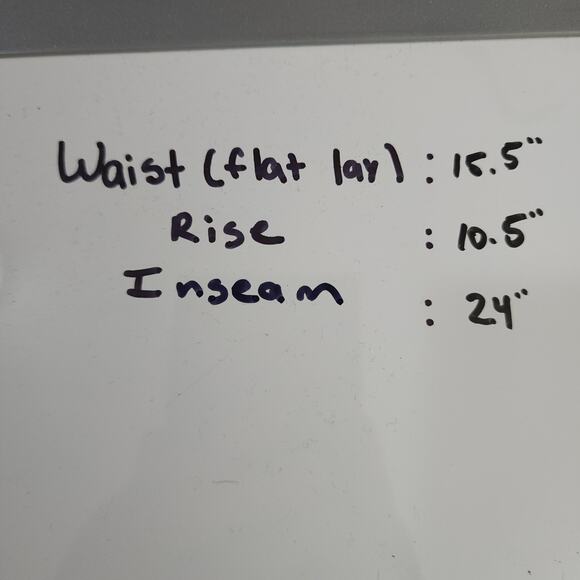 Waist (flat lay) : 15.5"
Rise : 10.5"
Inseam : 24"